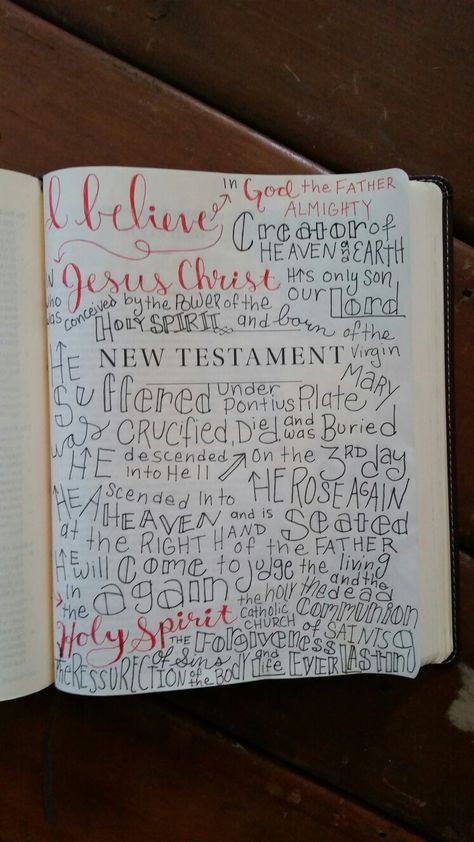 I believe in God the FATHER
ALMIGHTY
Creator of
HEAVEN and EARTH
IN Jesus Christ His only son
our Lord
who was conceived by the Power of the
HOLY SPIRIT and born of the
Virgin
MARY
NEW TESTAMENT
HE
Suffered under
Pontius Plate
was CRUCIFIED, Died and was Buried
HE descended
into Hell
On the 3RD day
HE ROSE AGAIN
HE Ascended Into
HEAVEN and is Seated
at the RIGHT HAND of the FATHER
HE will Come to judge the living
and the
dead
again
in the
Holy Spirit
the holy
catholic
CHURCH
the
Communion
of SAINTS
THE Forgiveness
of Sins
the RESSURECTION of the BODY and Life EVERLASTING